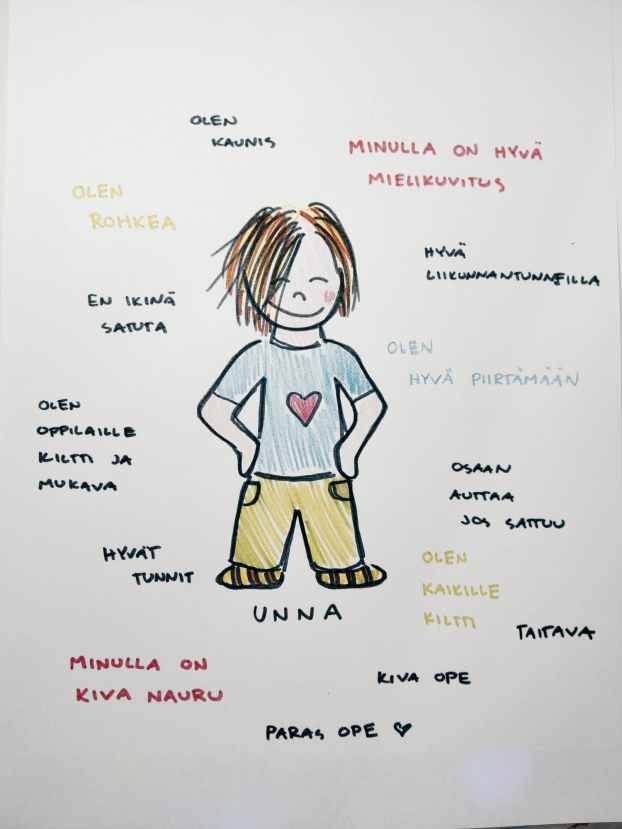 OLEN
KAUNIS
MINULLA ON HYVÄ
MIELIKUVITUS
OLEN
ROHKEA
HYVÄ
LIIKUNNANTUNNEILLA
EN IKINÄ
SATUTA
OLEN
HYVÄ PIIRTÄMÄÄN
OLEN
OPPILAILLE
KILTTI JA
MUKAVA
OSAAN
AUTTAA
JOS SATTUU
HYVÄT
TUNNIT
OLEN
KAIKILLE
KILTTI
UNNA
TAITAVA
MINULLA ON
KIVA NAURU
KIVA OPE
PARAS OPE ♥